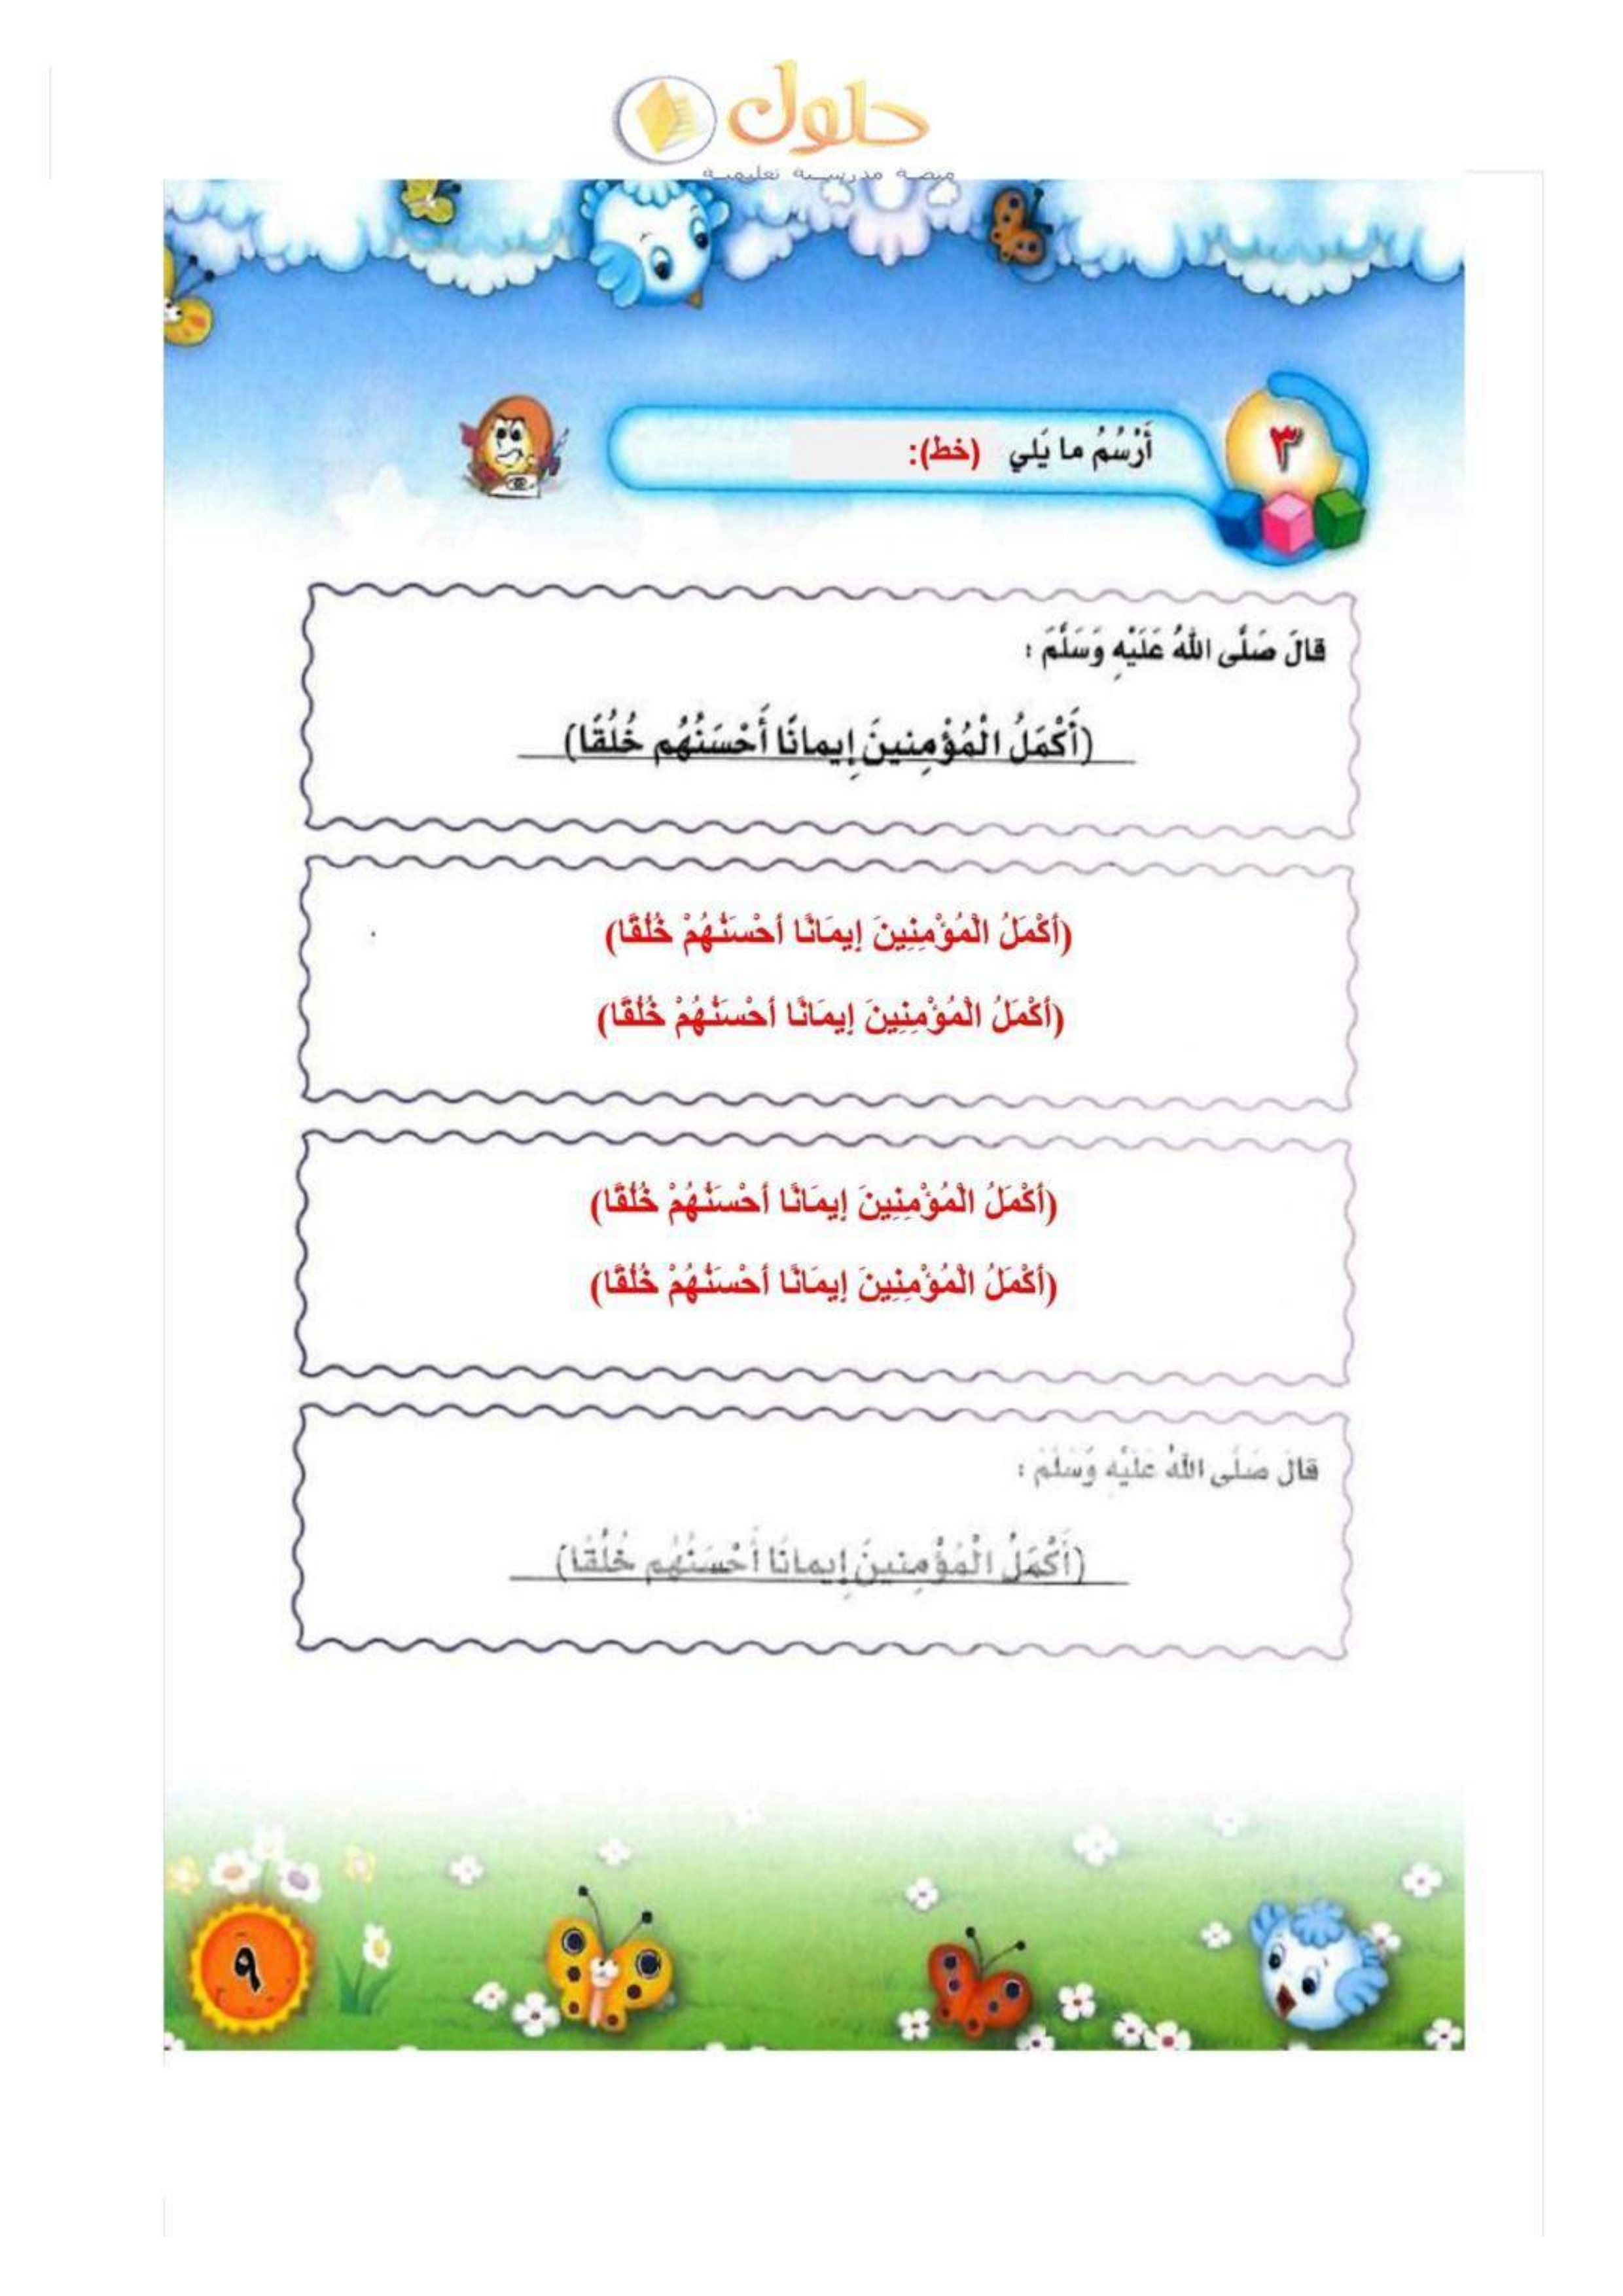 حلول
منصة مدرسية تعليمية
٣
أَرْسُمُ ما يَلي (خط):
قالَ صَلَّى اللهُ عَلَيْهِ وَسَلَّمَ :
(أَكْمَلُ الْمُؤْمِنينَ إِيمانًا أَحْسَنُهُم خُلُقًا)
(أَكْمَلُ الْمُؤْمِنِينَ إِيمَانًا أَحْسَنُهُمْ خُلُقًا)
(أَكْمَلُ الْمُؤْمِنِينَ إِيمَانًا أَحْسَنُهُمْ خُلُقًا)
(أَكْمَلُ الْمُؤْمِنِينَ إِيمَانًا أَحْسَنُهُمْ خُلُقًا)
(أَكْمَلُ الْمُؤْمِنِينَ إِيمَانًا أَحْسَنُهُمْ خُلُقًا)
قالَ صَلَّى اللهُ عَلَيْهِ وَسَلَّمَ :
(أَكْمَلُ الْمُؤْمِنينَ إِيمانًا أَحْسَنُهُم خُلُقًا)
٩